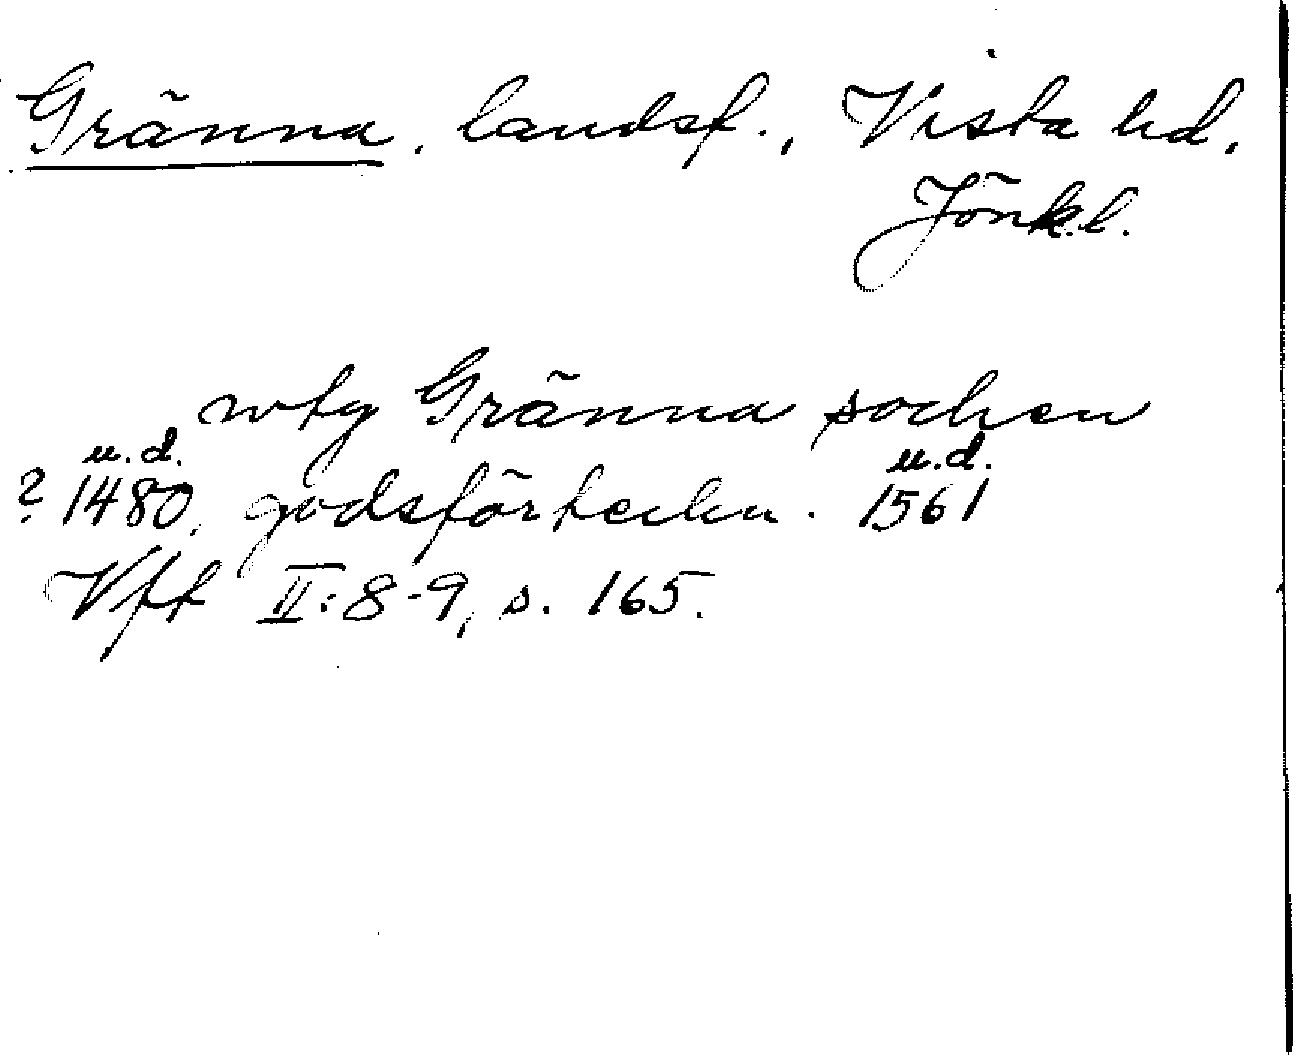 Gränna, landsf., Vista hd,
Jönk.l.
wty Gränna sochen
u.d. u.d.
? 1480, godsförteckn. 1561
Vft II:8-9, s. 165.